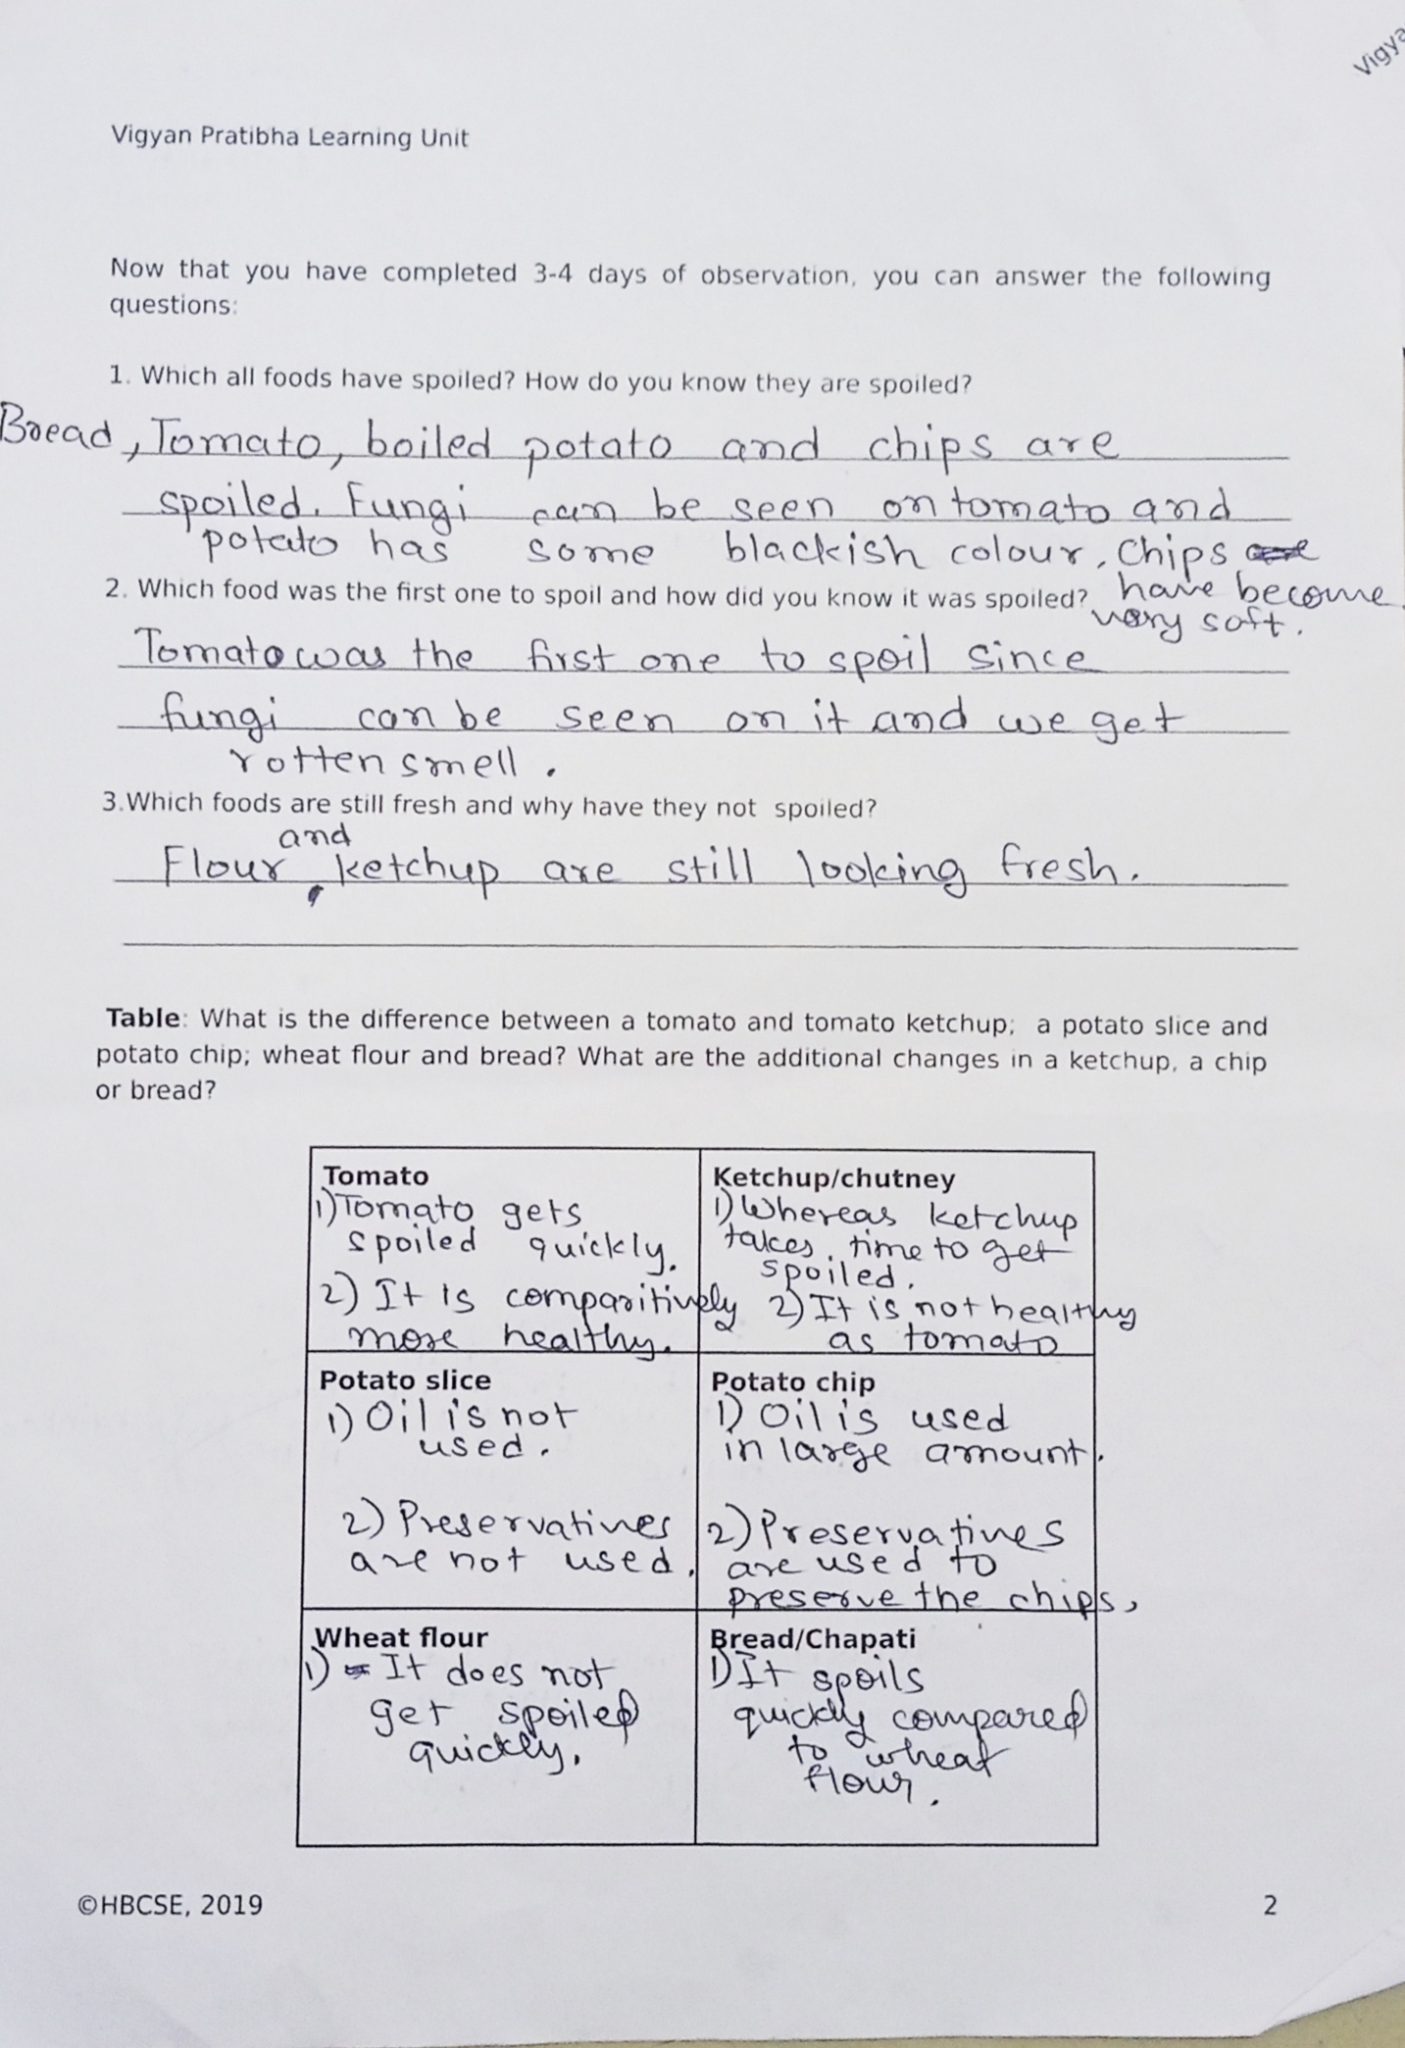 Vigya
Vigyan Pratibha Learning Unit
Now that you have completed 3-4 days of observation, you can answer the following
questions:
1. Which all foods have spoiled? How do you know they are spoiled?
Bread, Tomato, boiled potato and chips are
spoiled. Fungi can be seen on tomato and
potato has some blackish colour. Chips
have become
very soft.
2. Which food was the first one to spoil and how did you know it was spoiled?
Tomato was the first one to spoil since
fungi can be seen on it and we get
rotten smell.
3.Which foods are still fresh and why have they not spoiled?
and
Flour ketchup are still looking fresh.
Table: What is the difference between a tomato and tomato ketchup; a potato slice and
potato chip; wheat flour and bread? What are the additional changes in a ketchup, a chip
or bread?
Tomato
1) Tomato gets
spoiled quickly.
2) It is comparitively
more healthy.
Ketchup/chutney
1) Whereas ketchup
takes time to get
spoiled.
2) It is not healthy
as tomato
Potato slice
1) Oil is not
used.
2) Preservatives
are not used.
Potato chip
1) Oil is used
in large amount.
2) Preservatives
are used to
preserve the chips,
Wheat flour
1) It does not
get spoiled
quickly.
Bread/Chapati
1) It spoils
quickly compared
to wheat
flour.
©HBCSE, 2019
2